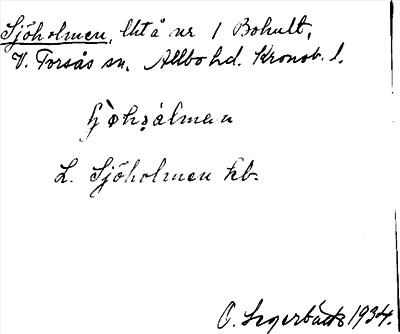 Sjöholmen, lht å nr 1 Bohult,
V. Torsås sn. Allbo hd. Kronob. l.
L. Sjöholmen kb.
1934.